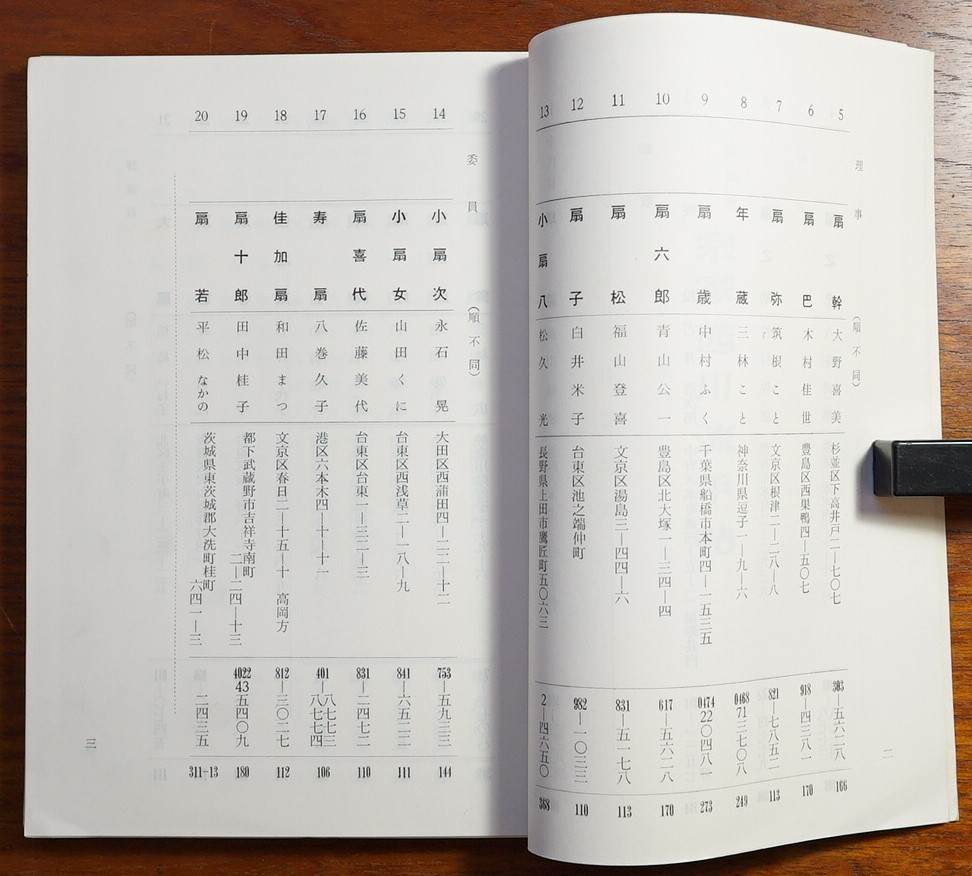 理事
（順不同）
5 扇幹 大野喜美 杉並区下高井戸二―七〇七 303―五六二八 166
6 扇巴 木村佳世 豊島区西巣鴨四―五〇七 918―四三八一 170
7 扇弥 筑根こと 文京区根津二―二八―八 821―七八五二 113
8 年蔵 三林こと 神奈川県逗子一―九―六 0468 71三七〇八 249
9 扇歳 中村ふく 千葉県船橋市本町四―一五三五 0474 22〇四八一 273
10 扇六郎 青山公一 豊島区北大塚一―三四―四 617―五六二八 170
11 扇松 福山登喜 文京区湯島三―四四―六 831―五一七八 113
12 扇子 白井米子 台東区池之端仲町 982―一〇三三 110
13 小扇八 松久光 長野県上田市鷹匠町五〇六三 2―四六五〇 368
二
委員
（順不同）
14 小扇次 永石晃 大田区西蒲田四―二二―十二 753―五九三三 144
15 小扇女 山田くに 台東区西浅草二―一八―九 841―六五二二 111
16 扇喜代 佐藤美代 台東区台東一―三二―三 831―二四七二 110
17 寿扇 八巻久子 港区六本木四―十―十一 401―八七七三 八七七四 106
18 佳加扇 和田まつ 文京区春日二―十五―十 高岡方 812―三〇二七 112
19 扇十郎 田中桂子 都下武蔵野市吉祥寺南町 二―二四―十三 4022 43五四〇九 180
20 扇若 平松なかの 茨城県東茨城郡大洗町桂町 六四一―三 二四三五 311-13
三